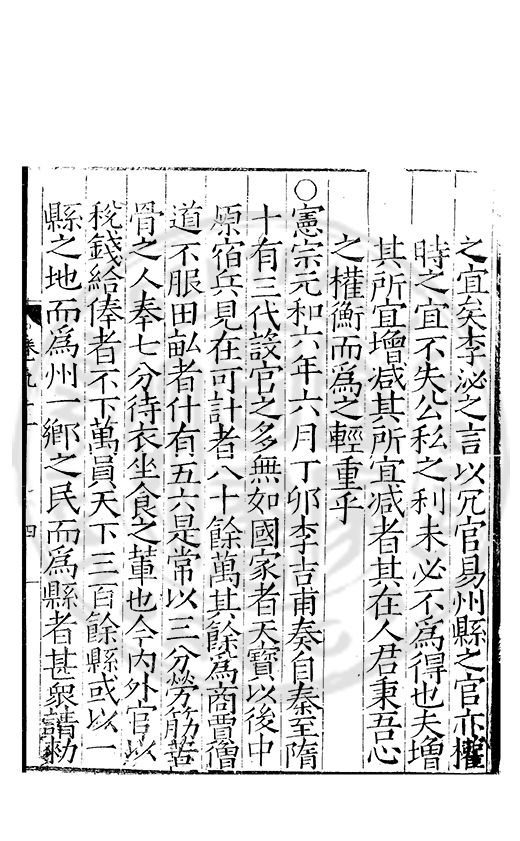 之宜矣李泌之言以冗官易州縣之官亦權
時之宜不失公私之利未必不爲得也夫增
其所宜增减其所宜减者其在人君秉吾心
之權衡而爲之輕重乎
○憲宗元和六年六月丁卯李吉甫奏自秦至隋
十有三代設官之多無如國家者天寶以後中
原宿兵見在可計者八十餘萬其餘爲商賈僧
道不服田畝者什有五六是常以三分勞筋苦
骨之人奉七分待衣坐食之軰也今内外官以
税錢給俸者不下萬員天下三百餘縣或以一
縣之地而爲州一鄉之民而爲縣者甚衆請勑
卷九十
四